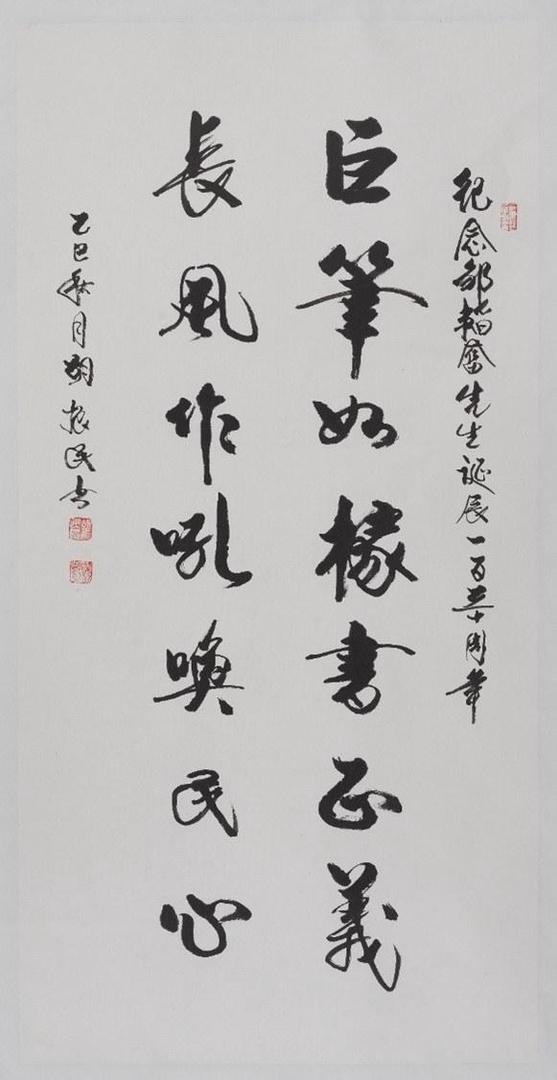 紀念鄒韜奮先生誕辰一百三十周年
巨筆如椽書正義
長風作吼喚民心
乙巳秋月胡振民書